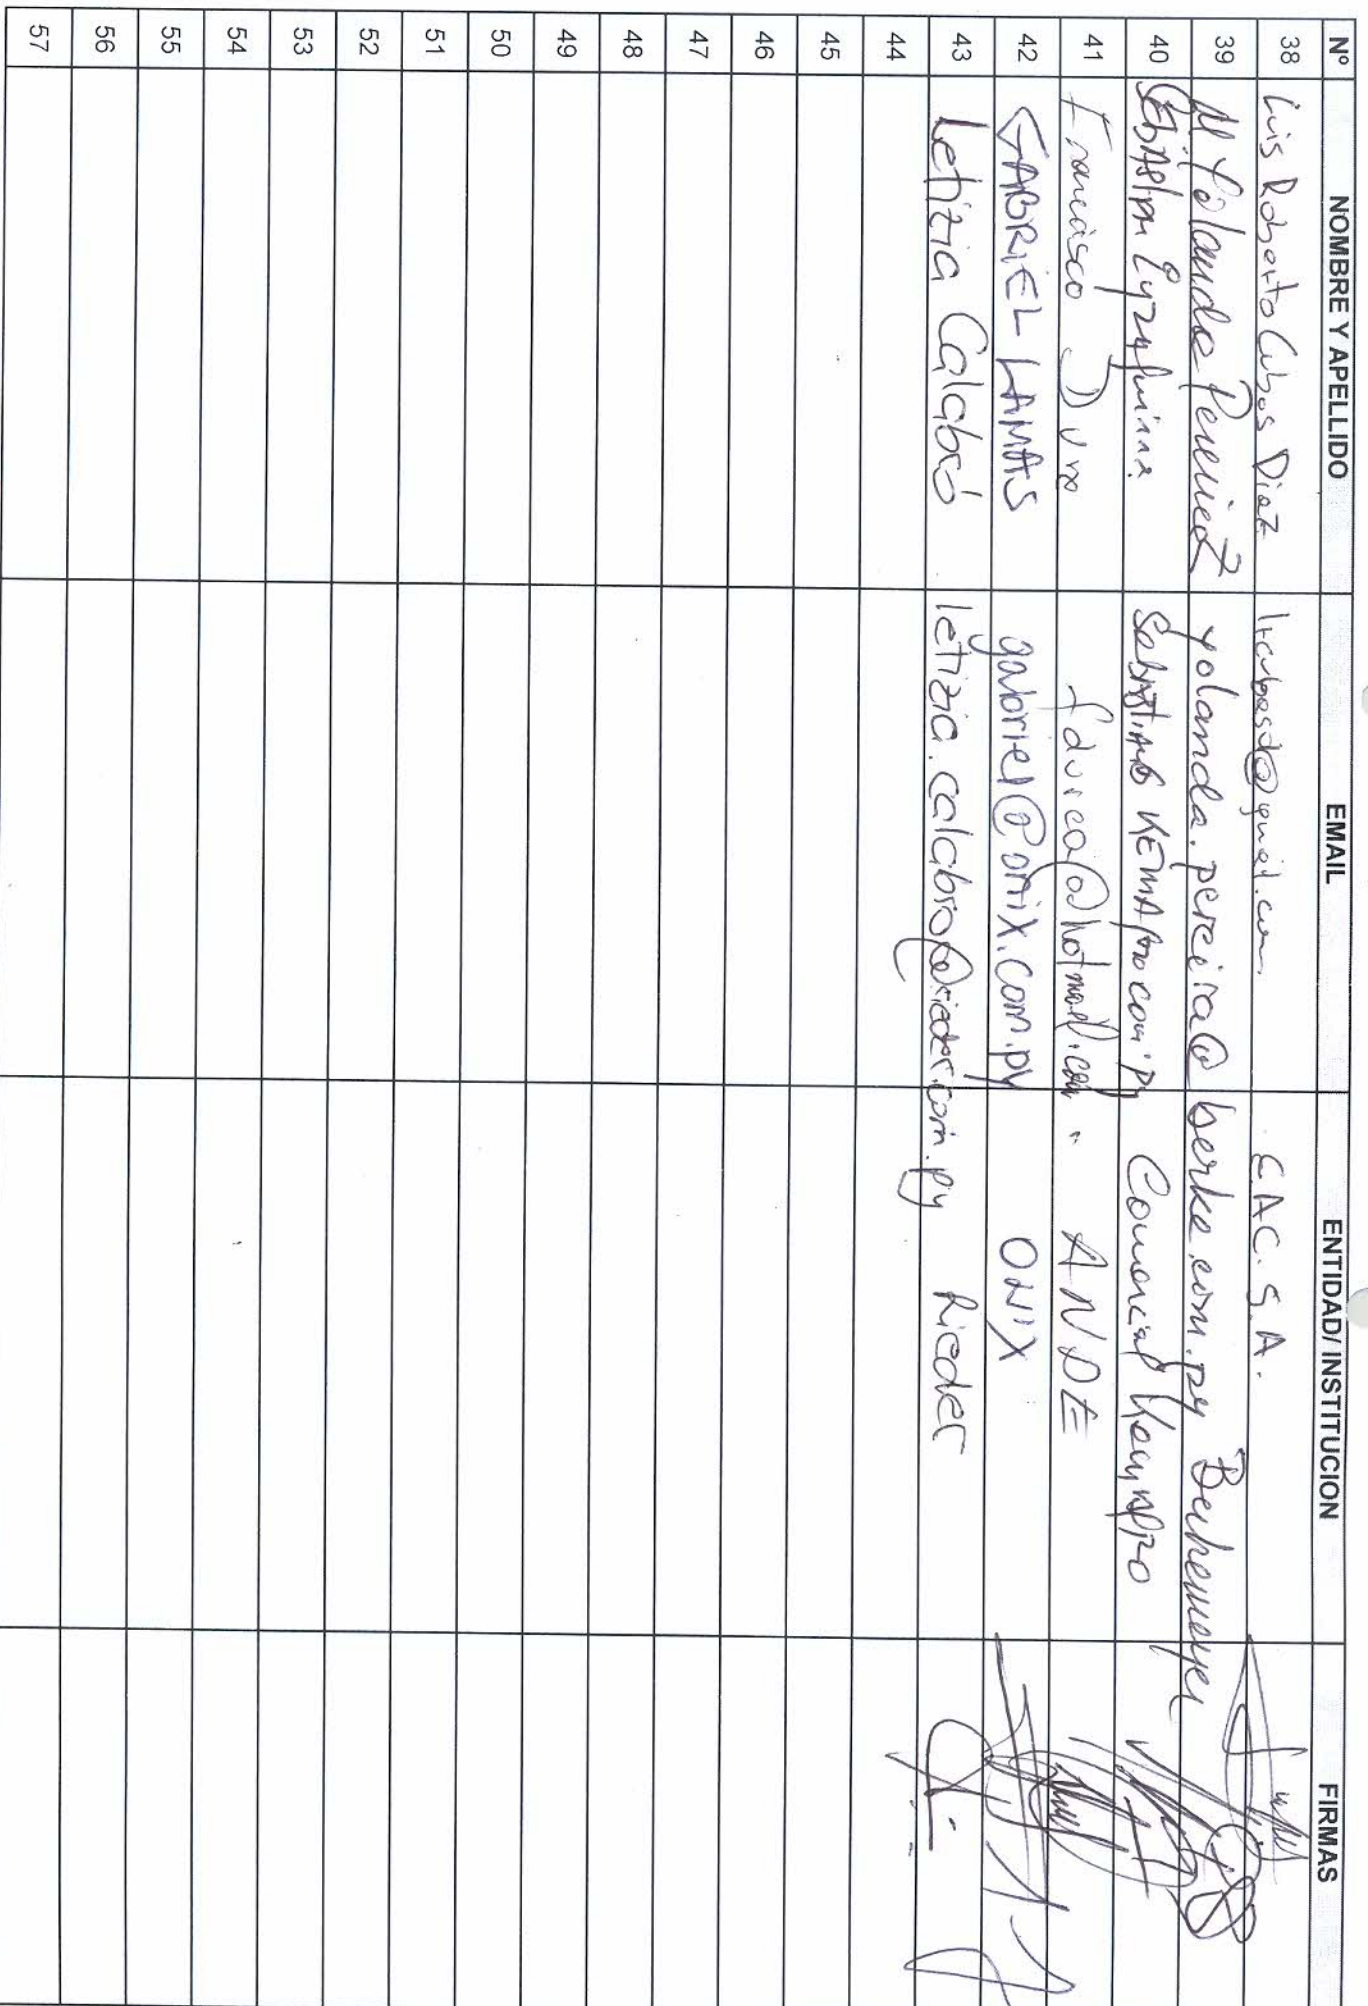 Nº NOMBRE Y APELLIDO EMAIL ENTIDAD/ INSTITUCION FIRMAS
38 Luis Roberto Cubas Diaz @gmail.com C.A.C. S.A.
39 M Yolanda Pereira yolanda.pereira@berke.com.py Berkemeyer
40 Comercial
41 Francisco Duro @hotmail.com ANDE
42 GABRIEL LAMAS gabriel@onix.com.py ONIX
43 Letizia Calabró letizia.calabro@rieder.com.py Rieder
44
45
46
47
48
49
50
51
52
53
54
55
56
57